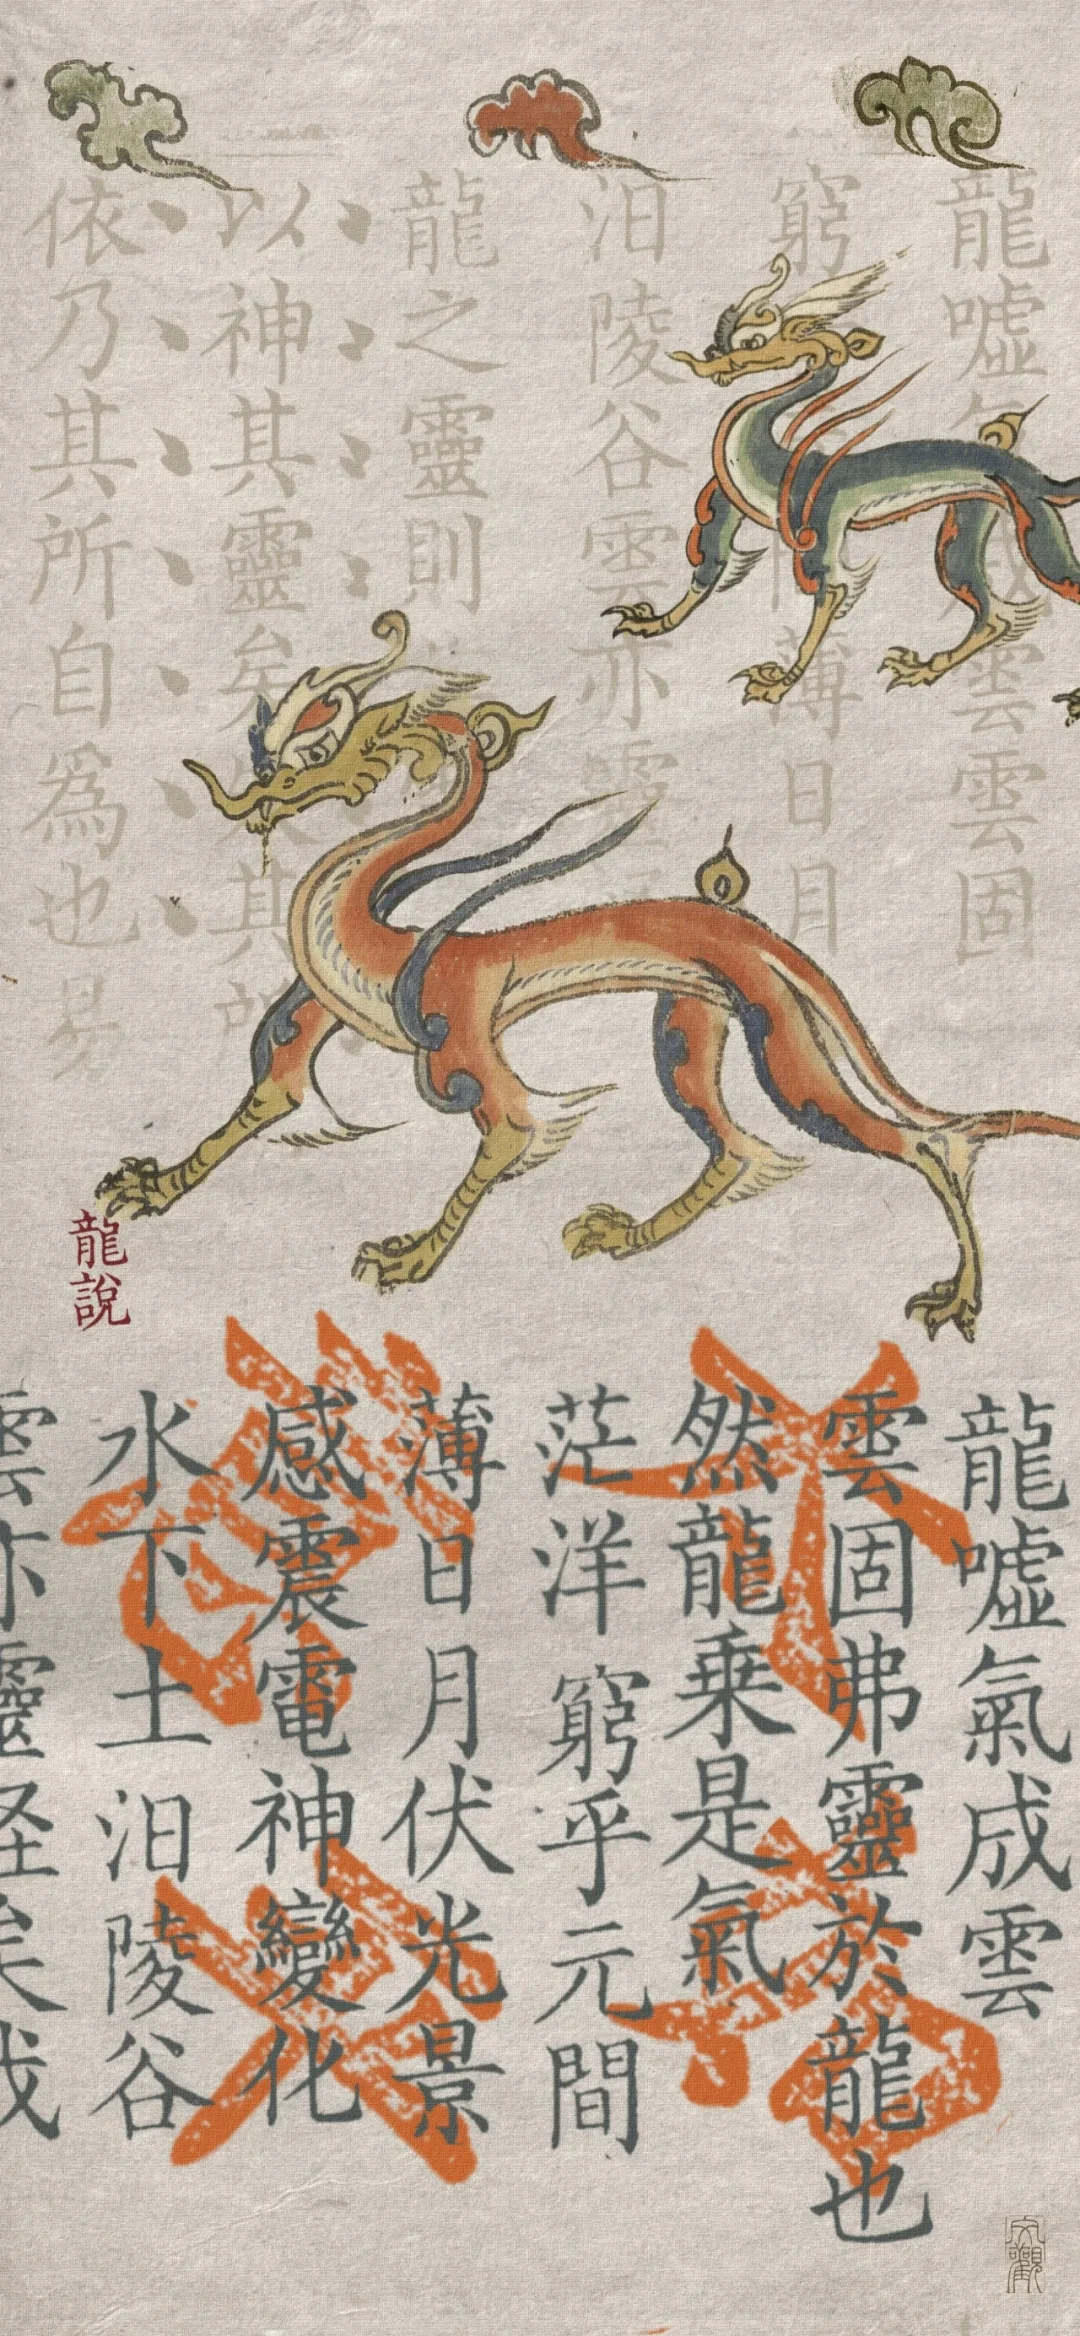 龍噓氣成雲雲固
窮間薄日月
汩陵谷雲亦靈
龍之靈則
以神其靈矣失其所
依乃其所自為也易
龍說
龍噓氣成雲
雲固弗靈於龍也
然龍乗是氣
茫洋窮乎元間
薄日月伏光景
感震電神變化
水下土汩陵谷
雲亦靈怪矣哉
文觀